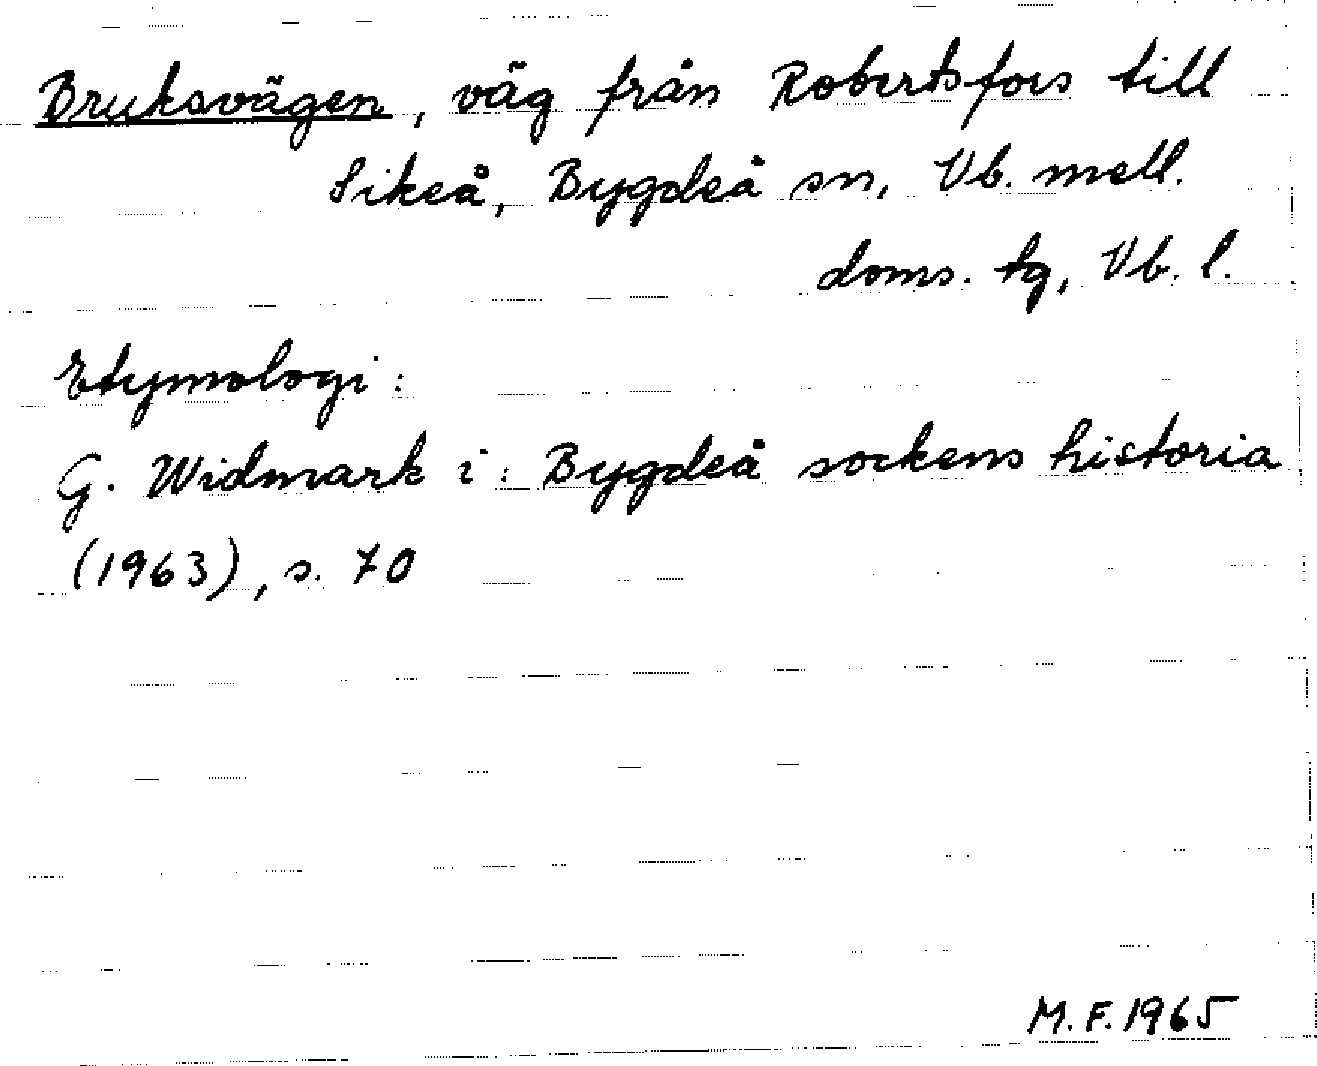 Bruksvägen, väg från Robertsfors till
Sikeå, Bygdeå sn, Vb. mell.
doms. tg, Vb. l.
Etymologi:
G. Widmark i: Bygdeå sockens historia
(1963), s. 70
M.F. 1965